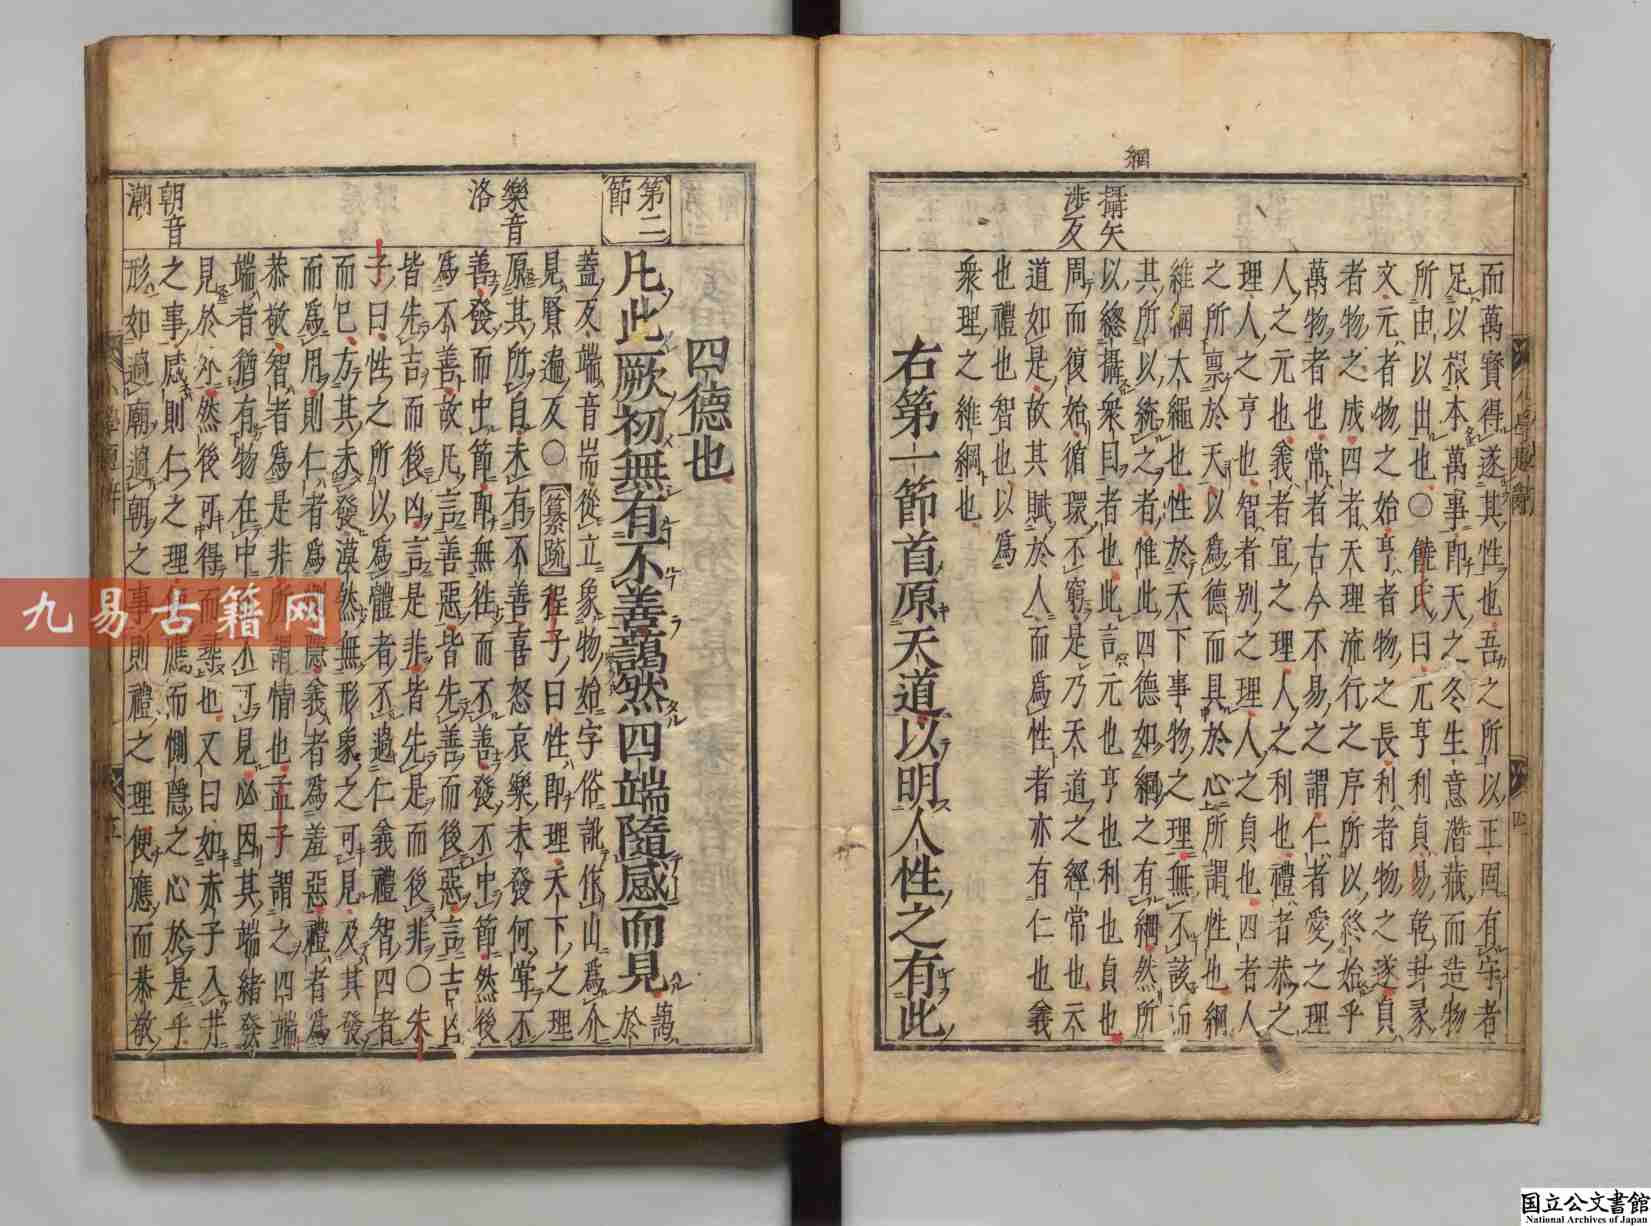 綱
攝矢
渉反
而萬寳得遂其性也吾之所以正固有守者
足以根本萬事即天之冬生意潜藏而造物
所由以出也〇饒氏曰元亨利貞易乾卦彖
文元者物之始亨者物之長利者物之遂貞
者物之成四者天理流行之序所以終始乎
萬物者也常者古今不易之謂仁者愛之理
人之元也義者宜之理人之利也禮者恭之
理人之亨也智者別之理人之貞也四者人
之所稟於天以為德而具於心所謂性也綱
維綱大繩也性於天下事物之理無不該而
其所以統之者惟此四德如綱之有綱然所
以總攝衆目者也此言元也亨也利也貞也
周而復始循環不窮是乃天道之經常也天
道如是故其賦於人而為性者亦有仁也義
也禮也智也以為
衆理之維綱也
右第一節首原天道以明人性之有此
四德也
第二
節
凡此厥初無有不善藹然四端隨感而見藹於
蓋反端音耑從立象物始字俗訛作山為介
見賢遍反〇纂疏程子曰性即理天下之理
樂音
洛
原其所自未有不善喜怒哀樂未發何甞不
善發而中節即無徃而不善發不中節然後
為不善故凡言善惡皆先善而後惡言吉凶
皆先吉而後凶言是非皆先是而後非〇朱
子曰性之所以為體者不過仁義禮智四者
而已方其未發漠然無形象之可見及其發
而為用則仁者為惻隱義者為羞惡禮者為
恭敬智者為是非所謂情也孟子謂之四端
端者猶有物在中而不可見必因其端緒發
見於外然後可得而尋也又曰如赤子入井
朝音
潮
之事感則仁之理便應而惻隱之心於是乎
形如過廟過朝之事則禮之理便應而恭敬
小學題辭
四
小學題辭
五
九易古籍网
国立公文書館
National Archives of Japan